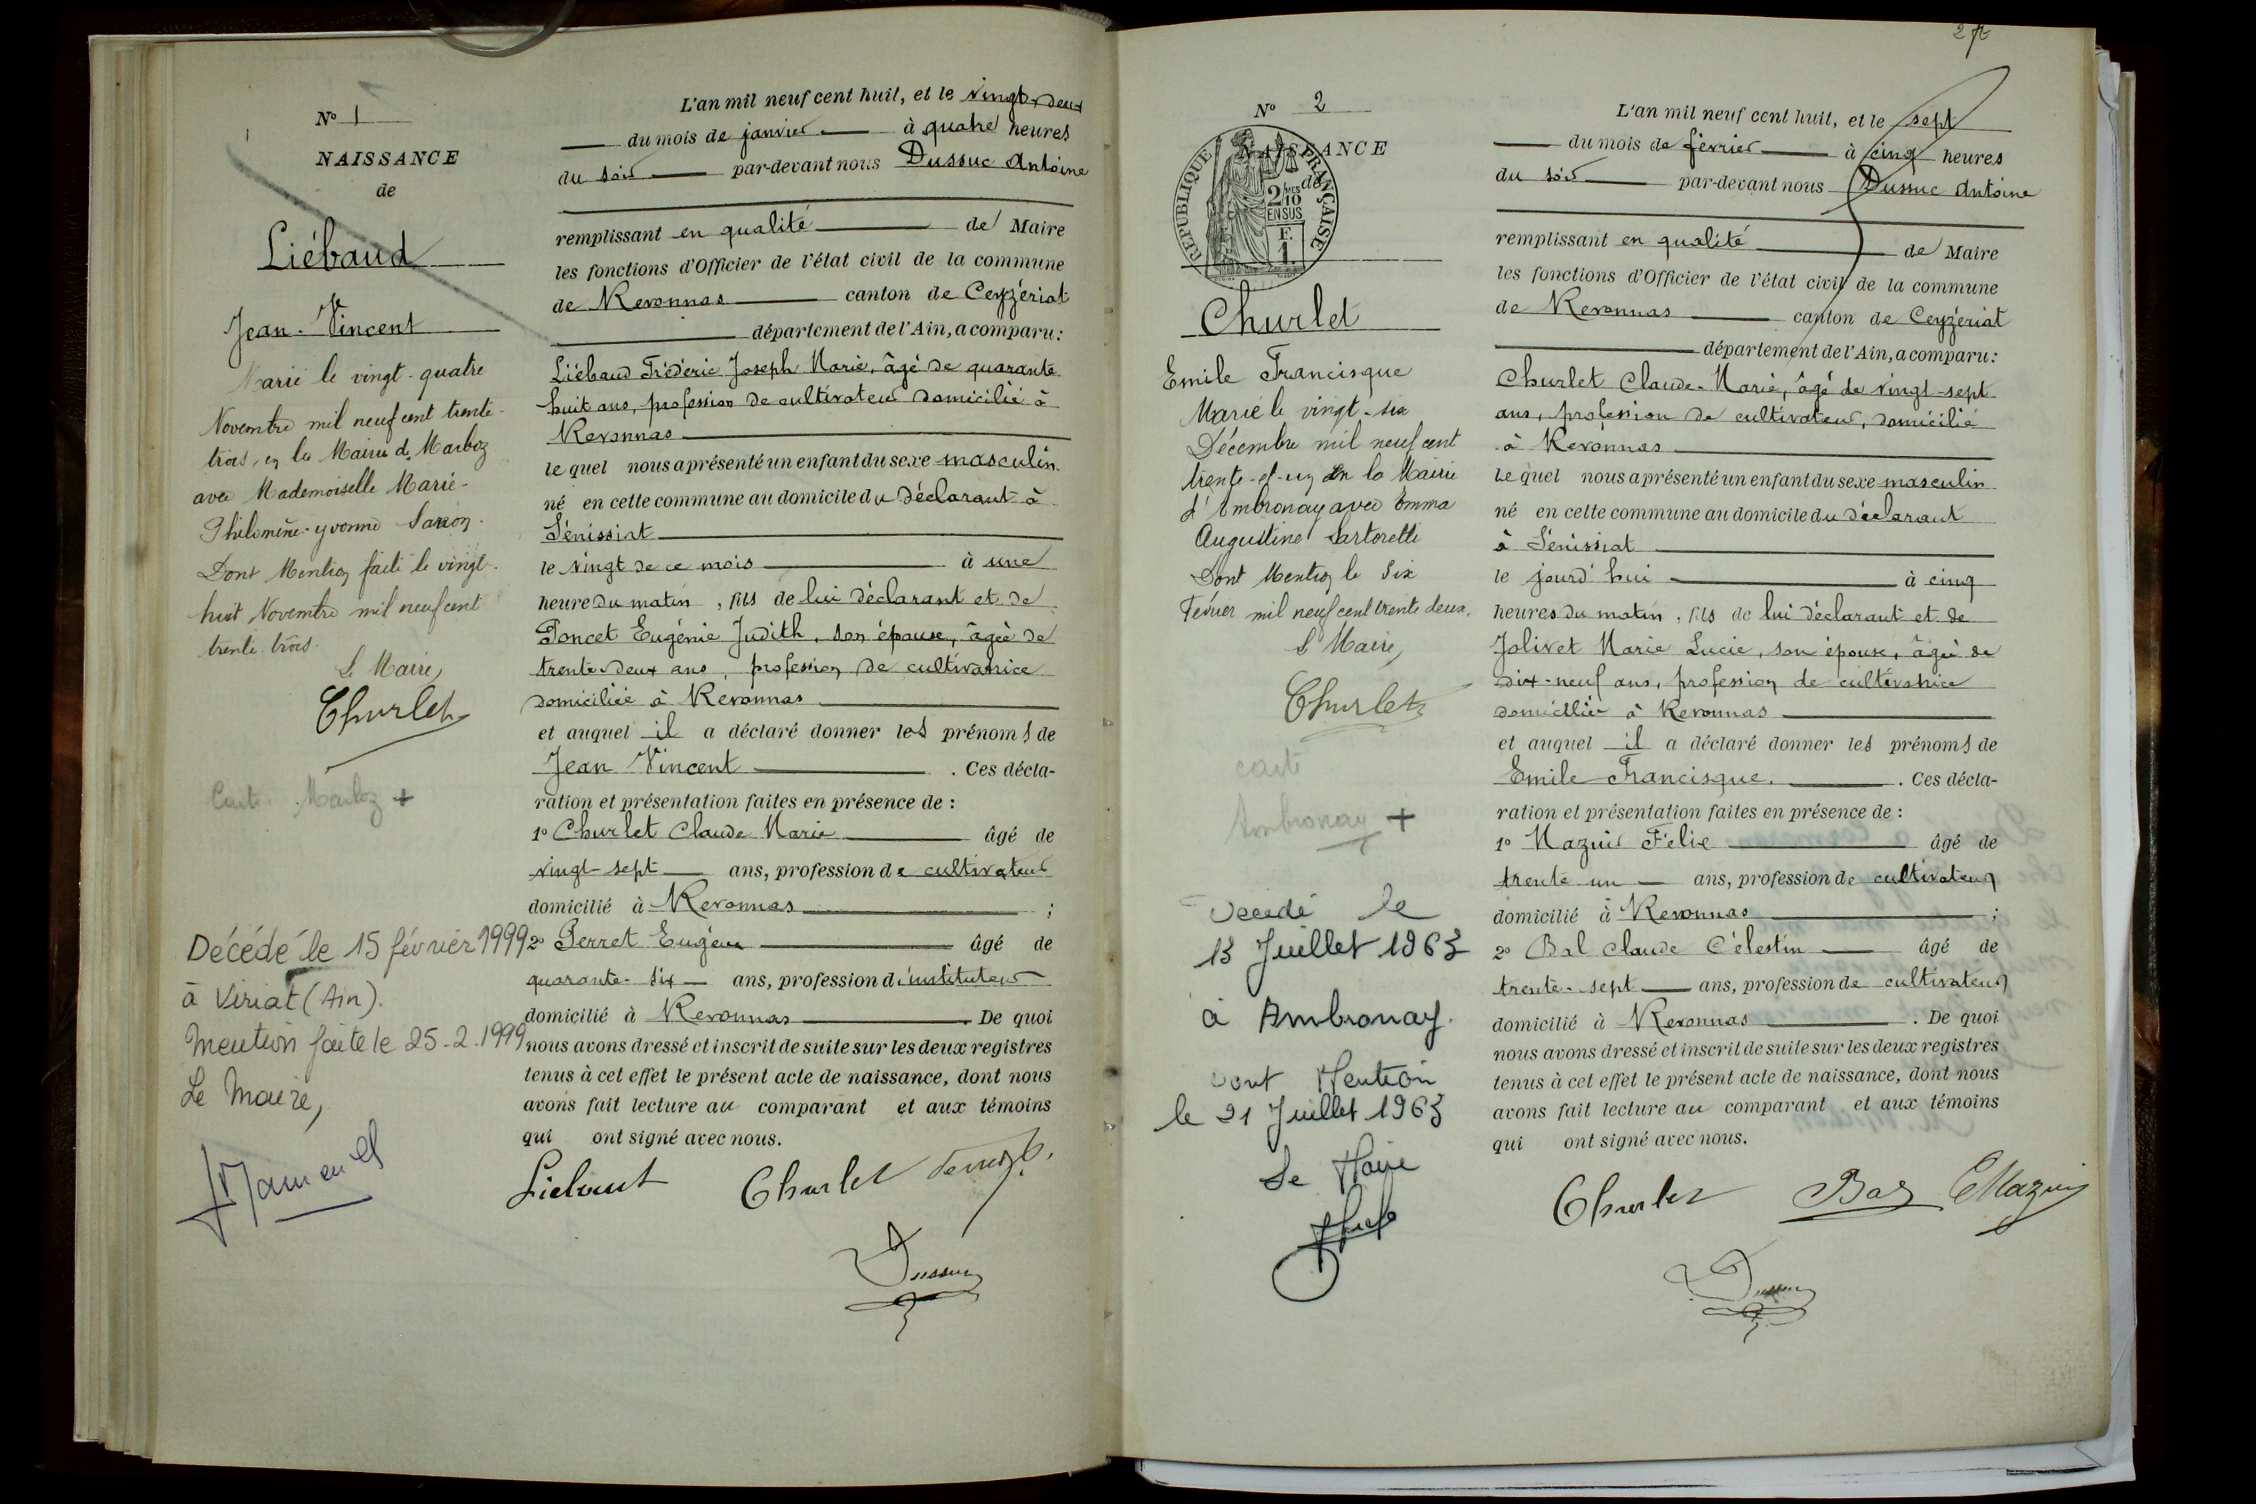 N° 1
NAISSANCE
de
Liébaud
Jean-Vincent
Marié le vingt-quatre
Novembre mil neuf cent trente-
trois, en la Mairie de Marboz
avec Mademoiselle Marie-
Philomène-yvonne
Dont Mention faite le vingt-
huit Novembre mil neuf cent
trente-trois.
Le Maire,
Churlet
Carte Marboz +
Décédé le 15 février 1999
à Viriat (Ain).
Mention faite le 25-2-1999
Le Maire,
L'an mil neuf cent huit, et le vingt-deux
du mois de janvier à quatre heures
du soir par-devant nous Dussuc Antoine
remplissant en qualité de Maire
les fonctions d'Officier de l'état civil de la commune
de Revonnas canton de Ceyzériat
département de l'Ain, a comparu:
Liébaud Frédéric Joseph Marie, âgé de quarante-
huit ans, profession de cultivateur domicilié à
Revonnas
lequel nous a présenté un enfant du sexe masculin
né en cette commune au domicile du déclarant à
Sénissiat
le vingt de ce mois à une
heure du matin, fils de lui déclarant et de
Poncet Eugénie Judith, son épouse, âgée de
trente-deux ans, profession de cultivatrice
domiciliée à Revonnas
et auquel il a déclaré donner les prénoms de
Jean Vincent . Ces décla-
ration et présentation faites en présence de :
1° Churlet Claude Marie âgé de
vingt-sept ans, profession de cultivateur
domicilié à Revonnas ;
2° Perret Eugène âgé de
quarante-six ans, profession d'instituteur
domicilié à Revonnas . De quoi
nous avons dressé et inscrit de suite sur les deux registres
tenus à cet effet le présent acte de naissance, dont nous
avons fait lecture au comparant et aux témoins
qui ont signé avec nous.
Liebaud Churlet Perret E.
Dussuc
N° 2
NAISSANCE
de
RÉPUBLIQUE FRANÇAISE
2/10 MES
EN SUS
F.
1.
Churlet
Emile Francisque
Marié le vingt-six
Décembre mil neuf cent
trente-et-un en la Mairie
d'Ambronay avec Emma
Augustine Sartoretti
Dont Mention le Six
Février mil neuf cent trente deux.
Le Maire,
Churlet
carte
Ambronay +
Décédé le
13 Juillet 1963
à Ambronay.
Dont Mention
le 21 Juillet 1963
Le Maire
L'an mil neuf cent huit, et le sept
du mois de février à cinq heures
du soir par-devant nous Dussuc Antoine
remplissant en qualité de Maire
les fonctions d'Officier de l'état civil de la commune
de Revonnas canton de Ceyzériat
département de l'Ain, a comparu:
Churlet Claude-Marie, âgé de vingt-sept
ans, profession de cultivateur, domicilié
à Revonnas
lequel nous a présenté un enfant du sexe masculin
né en cette commune au domicile du déclarant
à Sénissiat
le jourd'hui à cinq
heures du matin, fils de lui déclarant et de
Jolivet Marie Lucie, son épouse, âgée de
dix-neuf ans, profession de cultivatrice
domiciliée à Revonnas
et auquel il a déclaré donner les prénoms de
Emile Francisque. . Ces décla-
ration et présentation faites en présence de :
1° Mazuir Félix âgé de
trente un ans, profession de cultivateur
domicilié à Revonnas ;
2° Bal Claude Célestin âgé de
trente-sept ans, profession de cultivateur
domicilié à Revonnas . De quoi
nous avons dressé et inscrit de suite sur les deux registres
tenus à cet effet le présent acte de naissance, dont nous
avons fait lecture au comparant et aux témoins
qui ont signé avec nous.
Churlet Bal Mazuir
Dussuc